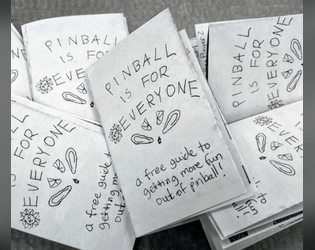 PINBALL
IS FOR
EVERYONE
a free guide to
getting more fun
out of pinball!
PINBALL
IS FOR
EVERYONE
PINBALL
IS FOR
EVERYONE
IS FOR
EVERYONE
a free
getting mo
out of